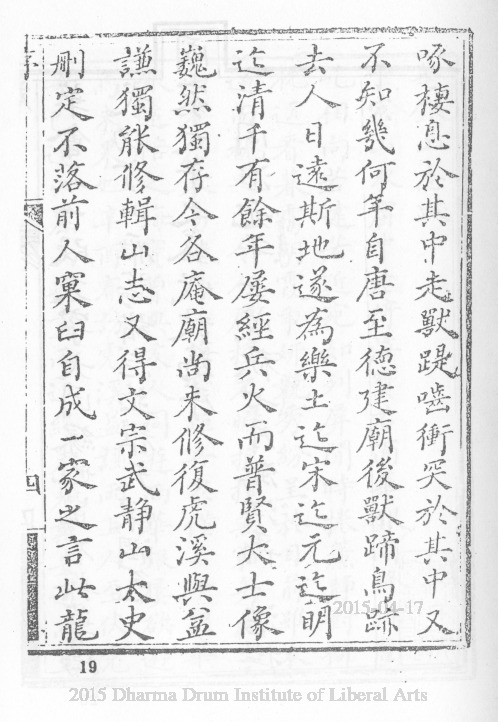 啄棲息於其中走獸踶嚙衝突於其中又
不知幾何年自唐至德建廟後獸蹄鳥跡
去人日遠斯地遂為樂土迄宋迄元迄明
迄清千有餘年屡經兵火而普賢大士像
巍然獨存今各庵廟尚未修復虎溪與益
謙獨能修輯山志又得文宗武静山太史
刪定不落前人窠臼自成一家之言此龍
四
2015-04-17
19
2015 Dharma Drum Institute of Liberal Arts